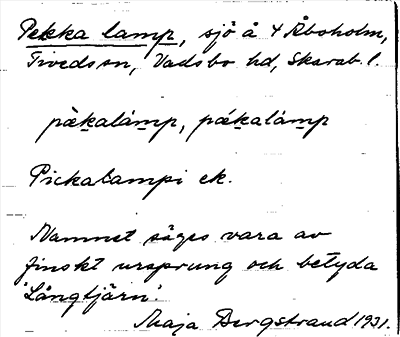 Pekka lamp, sjö å ⅟₄ Åboholm,
Tiveds sn, Vadsbo hd, Skarab. l.
pækalámp, pækalámp
Pickalampi ek.
Namnet säges vara av
finskt ursprung och betyda
'Långtjärn'.
Maja Bergstrand 1931.